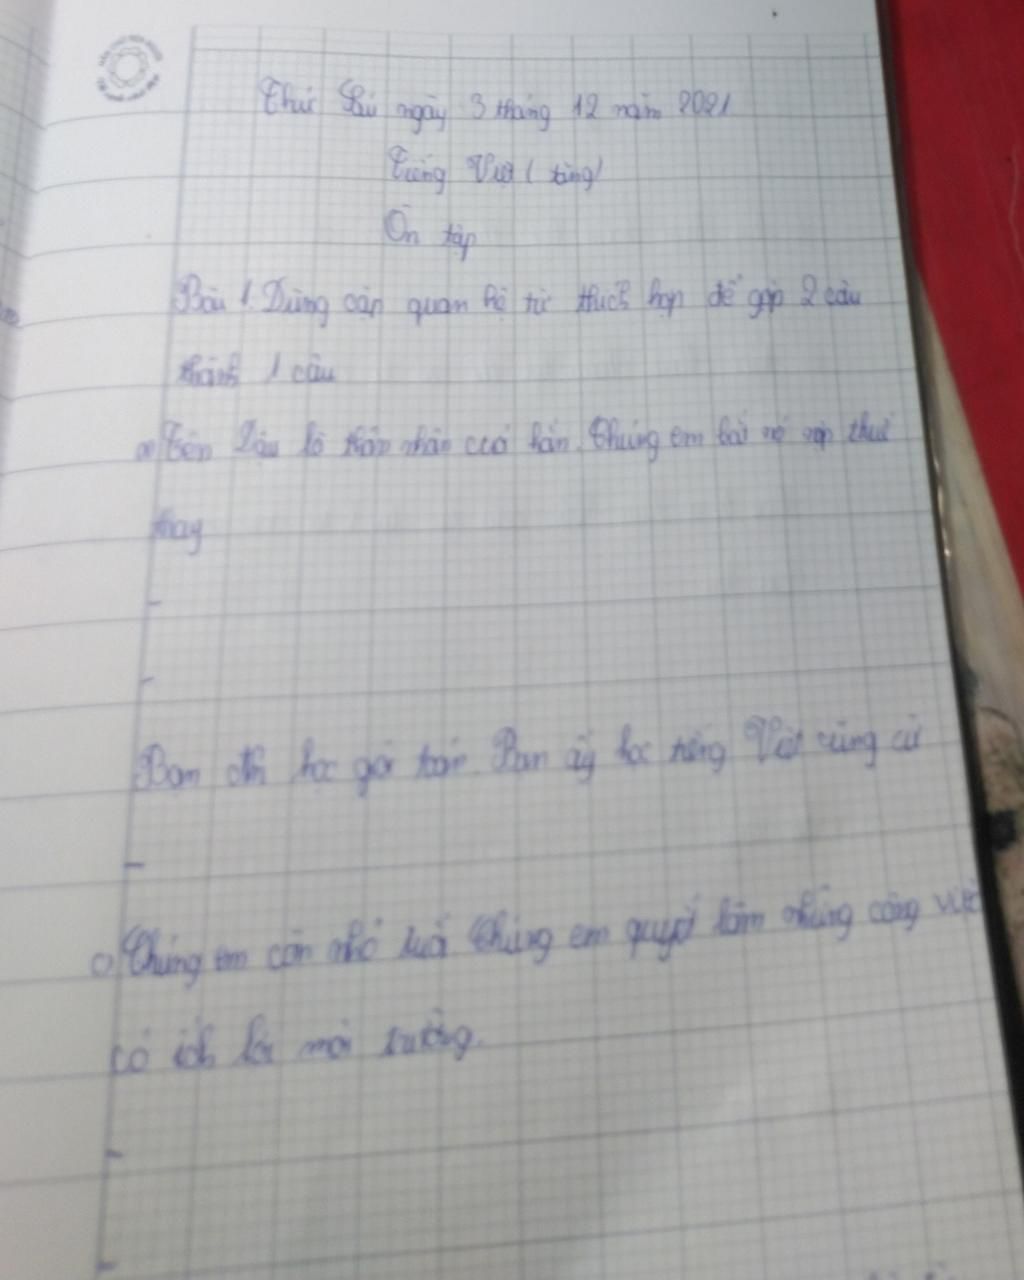 Thứ Sáu ngày 3 tháng 12 năm 2021
Tiếng Việt (tăng)
Ôn tập
Bài 1. Dùng cặp quan hệ từ thích hợp để gộp 2 câu
thành 1 câu
a) nhân của hắn. Chúng em
thay
Bạn học giỏi toán. Bạn ấy học tiếng Việt cũng cừ
c) Chúng em còn nhỏ tuổi Chúng em quyết làm những công việc
có ích môi trường.